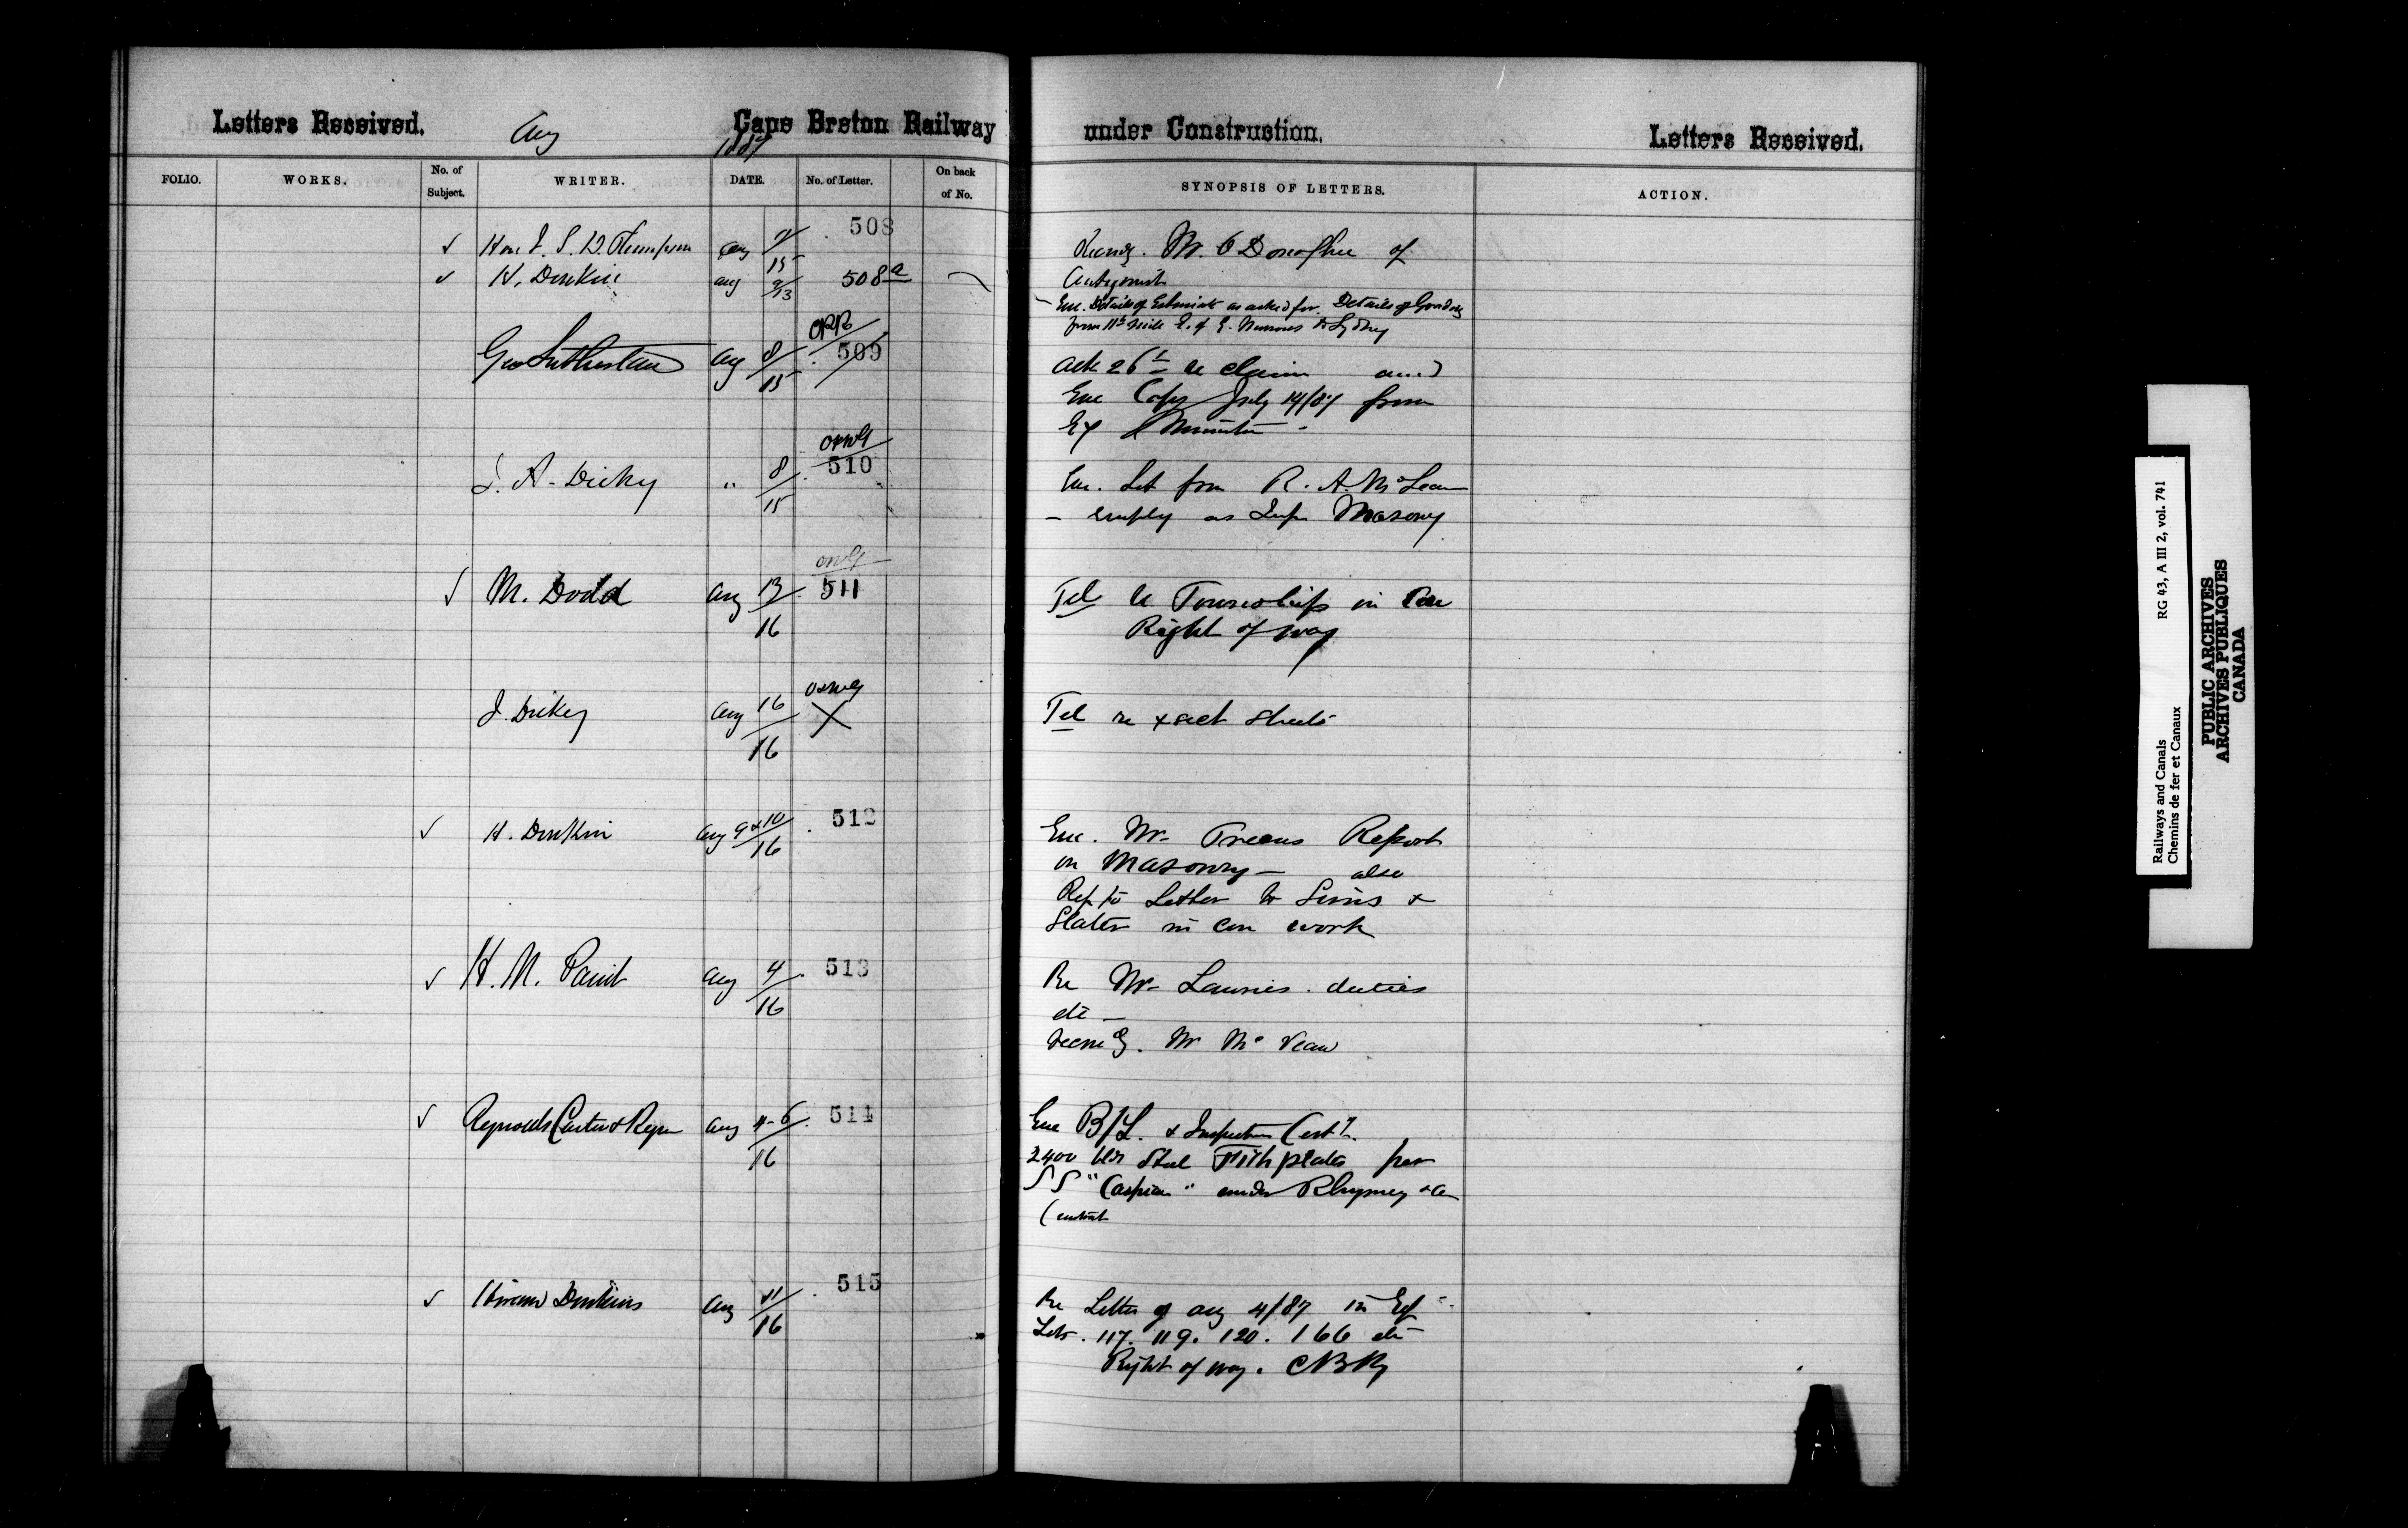 Letters Received. Aug 1887 Cape Breton Railway under Construction. Letters Received.
FOLIO. WORKS. No. of Subject. WRITER. DATE. No. of Letter. On back of No. SYNOPSIS OF LETTERS. ACTION.
✓ Hon J. S. D. Thompson Aug 15 508
Mr. O'Donoghue of
Antigonish
✓ H. Donkin Aug 9/13 508a
Enc. Details of Estimate as asked for. Details of
from 11th mile E. of G. Narrows to Sydney
Geo Sutherland Aug 8/15 OPR 509
Ack 26th re claim and
Enc Copy July 14/87 from
Ex Minister
J. A. Dickey " 8/15 510
Enc. Let from R. A. McLean
- employ as Insp Masonry
✓ M. Dodd Aug 13/16 511
Tel re Township in
Right of way
J. Dickey Aug 16/16 X
Tel re xsect sheets
✓ H. Donkin Aug 9+10/16 512
Enc. Mr Report
on Masonry - also
Rep to Letter to Sims &
Slater in con work
✓ H. M. Paint Aug 4/16 513
Re Mr Lauries duties
etc -
✓ Reynolds Carter & Aug 4-6/16 514
Enc B/L. & Inspection Cert
2400 Steel Fish plates per
SS "Caspian" under Rhymney
Contract
✓ Hiram Donkin Aug 11/16 515
Re Letter of Aug 4/87 in
Lets. 117. 119. 120. 166 etc
Right of way. CBRy
Railways and Canals RG 43, A III 2, vol. 741
Chemins de fer et Canaux
PUBLIC ARCHIVES
ARCHIVES PUBLIQUES
CANADA